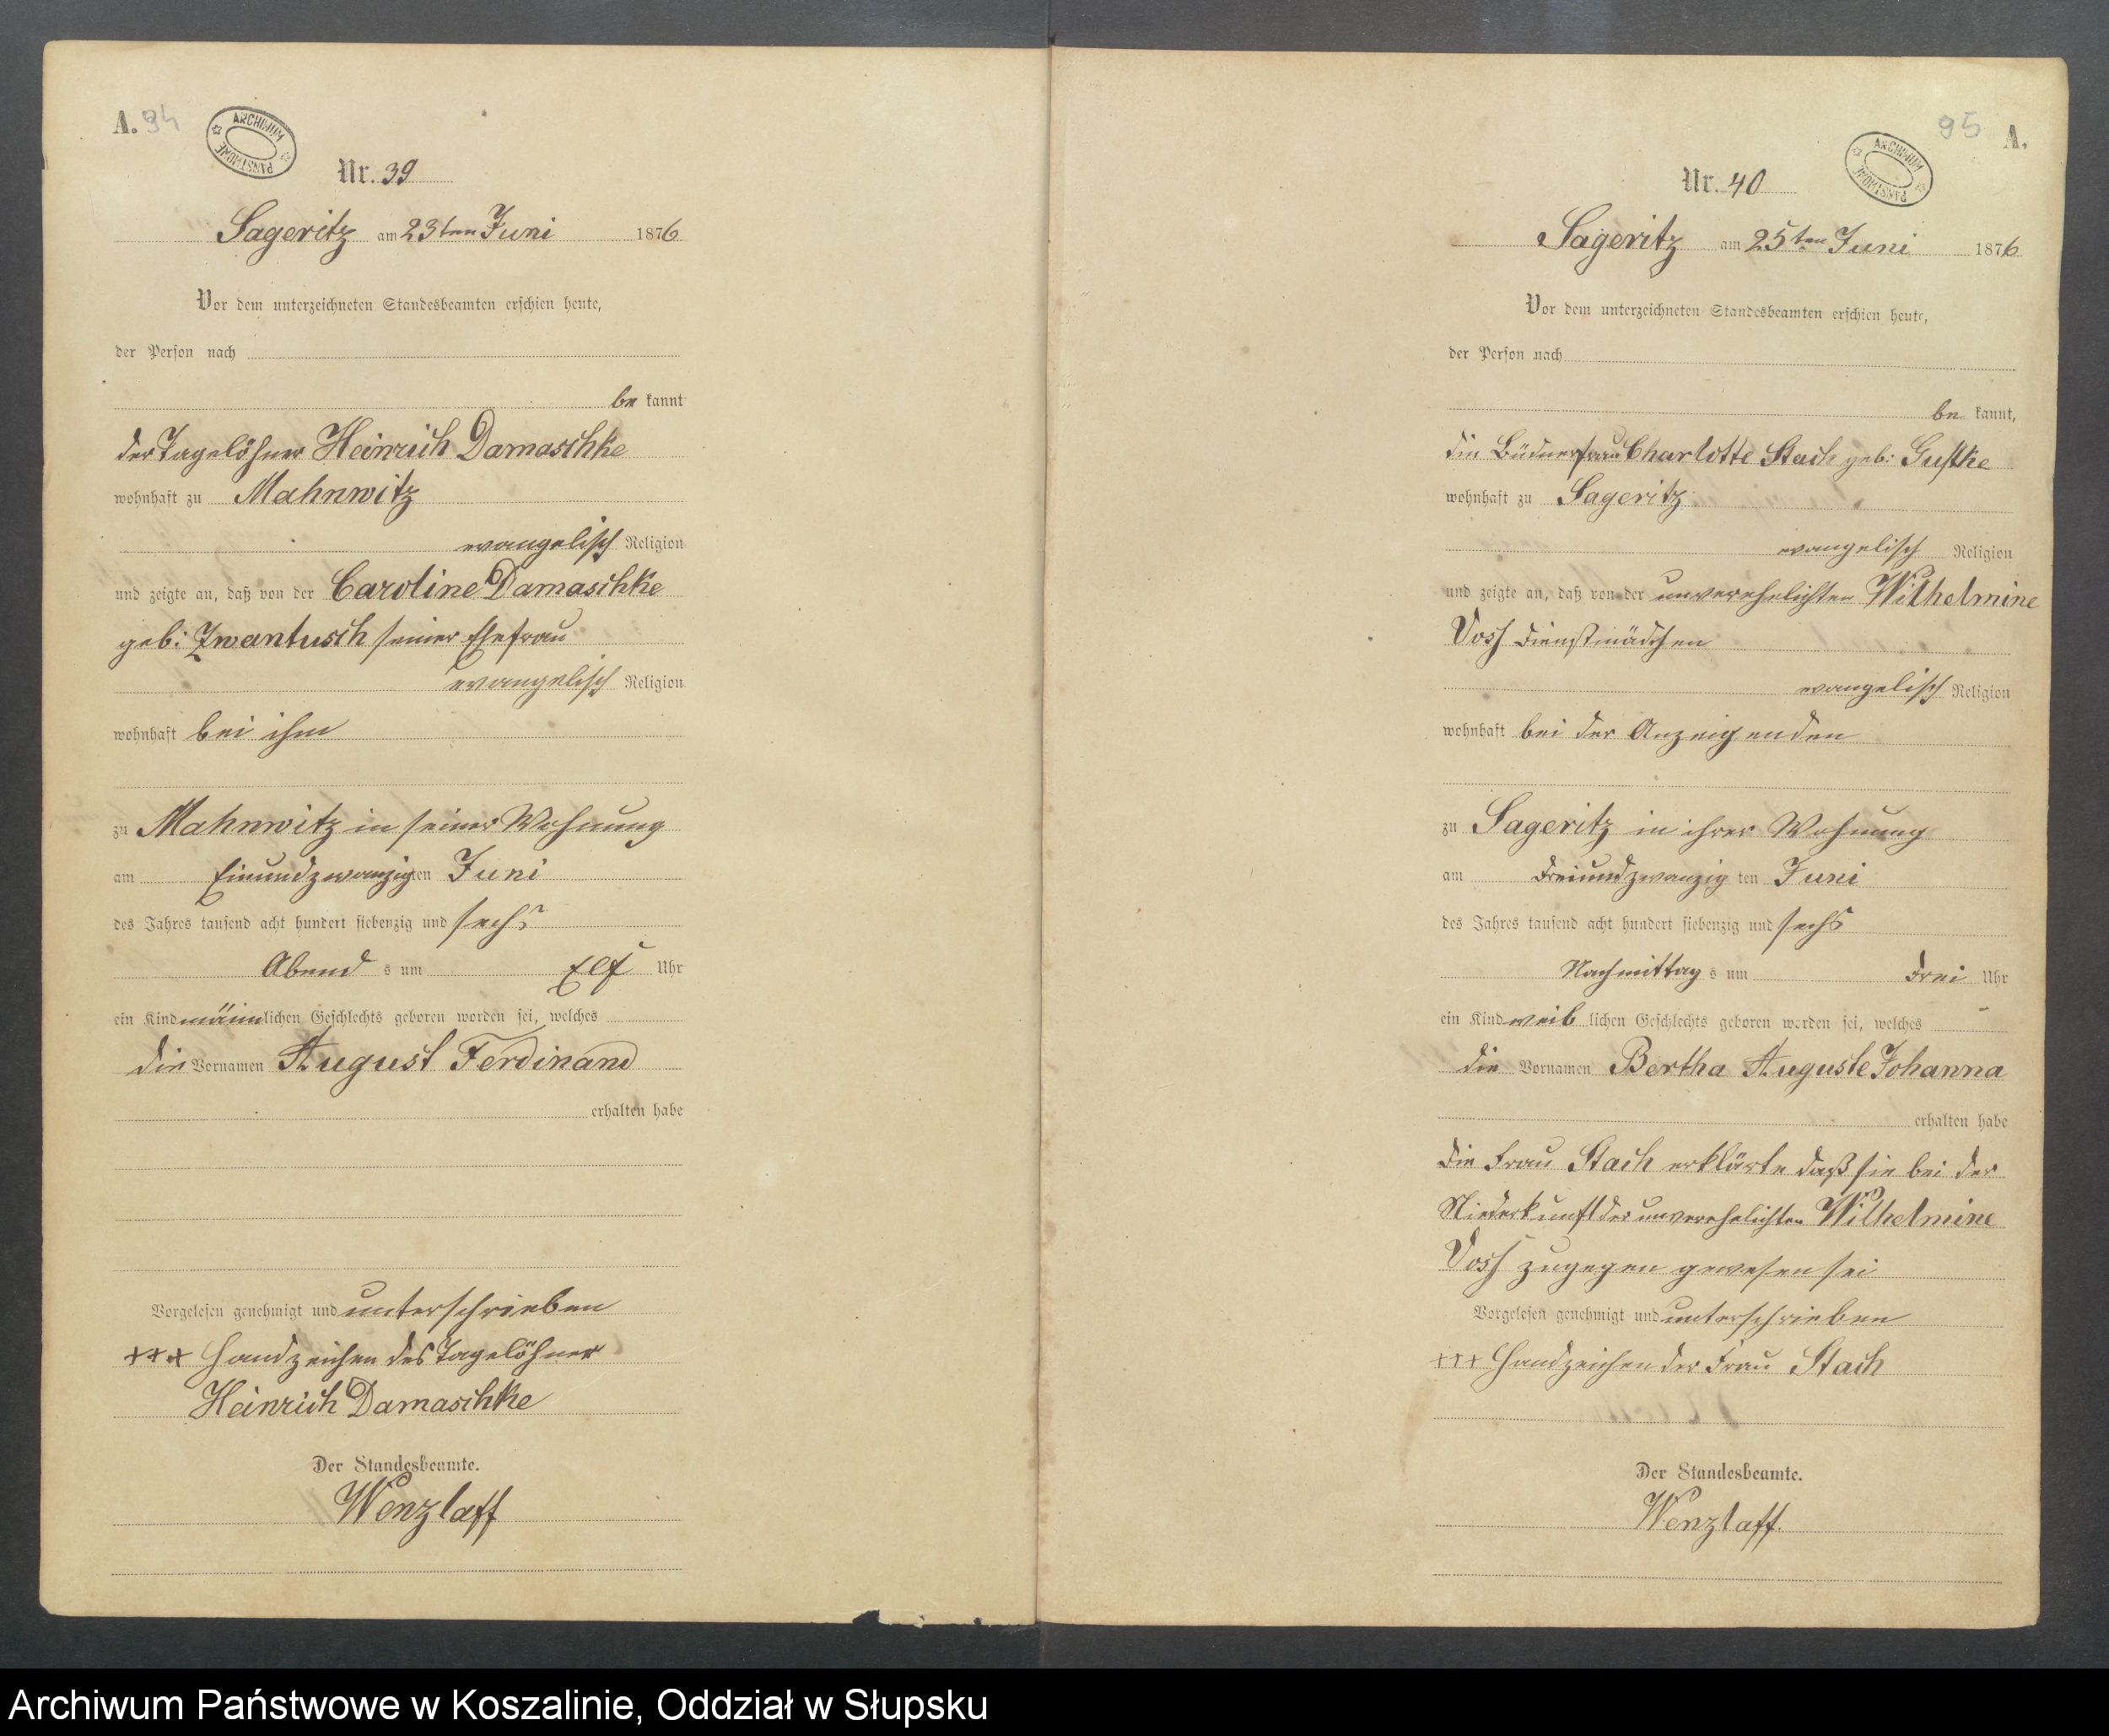 A. 94
ARCHIWUM PAŃSTWOWE
Nr. 39
Sageritz am 23ten Juni 1876
Vor dem unterzeichneten Standesbeamten erschien heute,
der Person nach
be kannt
der Tagelöhner Heinrich Damaschke
wohnhaft zu Mahnwitz
evangelisch Religion
und zeigte an, daß von der Caroline Damaschke
geb: Zwantusch seiner Ehefrau
evangelisch Religion
wohnhaft bei ihm
zu Mahnwitz in seiner Wohnung
am Einundzwanzigten Juni
des Jahres tausend acht hundert siebenzig und sechs
Abend s um Elf Uhr
ein Kind männlichen Geschlechts geboren worden sei, welches
die Vornamen August Ferdinand
erhalten habe
Vorgelesen genehmigt und unterschrieben
+++ Handzeichen des Tagelöhner
Heinrich Damaschke
Der Standesbeamte.
Wenzlaff
95 A.
ARCHIWUM PAŃSTWOWE
Nr. 40
Sageritz am 25ten Juni 1876
Vor dem unterzeichneten Standesbeamten erschien heute,
der Person nach
be kannt,
die Büdnerfrau Charlotte Stach geb: Gustke
wohnhaft zu Sageritz
evangelisch Religion
und zeigte an, daß von der unverehelichten Wilhelmine
Voss Dienstmädchen
evangelisch Religion
wohnhaft bei der Anzeigenden
zu Sageritz in ihrer Wohnung
am Dreiundzwanzig ten Juni
des Jahres tausend acht hundert siebenzig und sechs
Nachmittag s um Drei Uhr
ein Kind weib lichen Geschlechts geboren worden sei, welches
die Vornamen Bertha Auguste Johanna
erhalten habe
Die Frau Stach erklärte daß sie bei der
Niederkunft der unverehelichten Wilhelmine
Voss zugegen gewesen sei
Vorgelesen genehmigt und unterschrieben
+++ Handzeichen der Frau Stach
Der Standesbeamte.
Wenzlaff.
Archiwum Państwowe w Koszalinie, Oddział w Słupsku